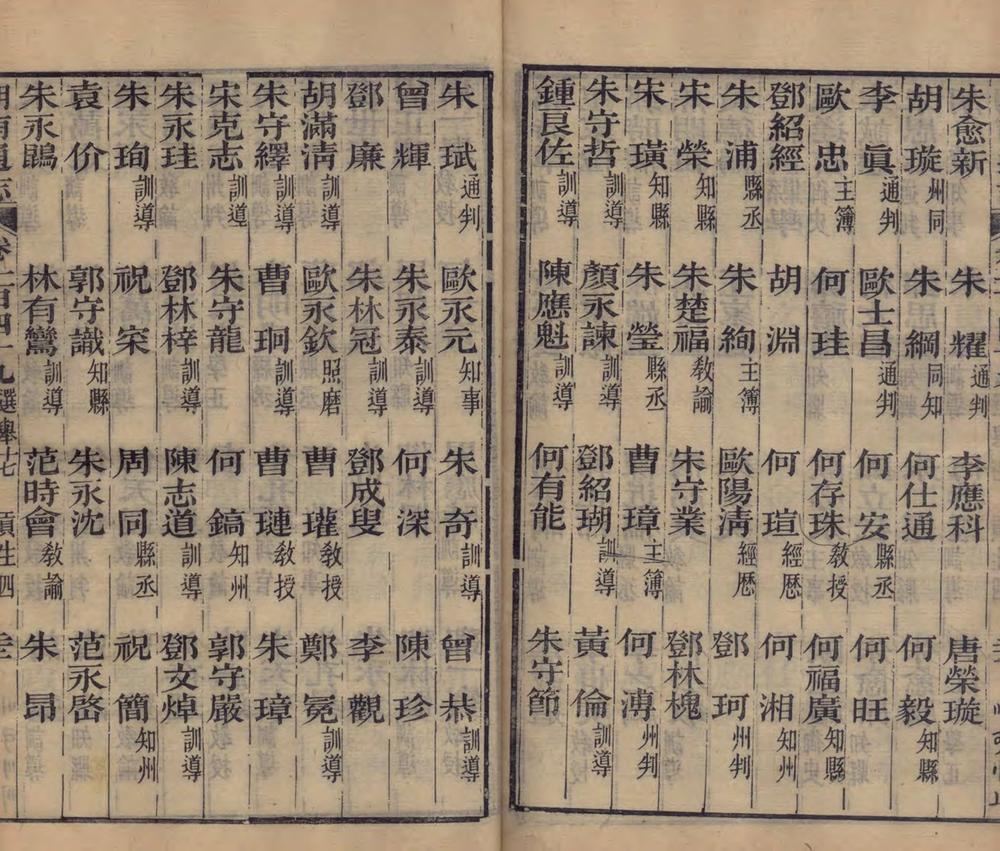 朱愈新 朱耀通判 李應科 唐榮璇
胡璇州同 朱綱同知 何仕通 何毅知縣
李眞通判 歐士昌通判 何安縣丞 何旺
歐忠主簿 何珪 何存珠教授 何福廣知縣
鄧紹經 胡淵 何瑄經歷 何湘知州
朱浦縣丞 朱絢主簿 歐陽淸經歷 鄧珂州判
宋榮知縣 朱楚福敎諭 朱守業 鄧林槐
宋璜知縣 朱瑩縣丞 曹璋主簿 何溥州判
朱守哲訓導 顏永諫訓導 鄧紹瑚訓導 黃倫訓導
鍾良佐訓導 陳應魁訓導 何有能 朱守節
朱斌通判 歐永元知事 朱奇訓導 曾恭訓導
曾輝 朱永泰訓導 何深 陳珍
鄧廉 朱林冠訓導 鄧成叟 李觀
胡滿淸訓導 歐永欽照磨 曹瓘敎授 鄭冕訓導
朱守繹訓導 曹珦訓導 曹璉敎授 朱璋
宋克志訓導 朱守龍 何鎬知州 郭守嚴
朱永珪 鄧林梓訓導 陳志道訓導 鄧文焯訓導
朱珣訓導 祝寀 周同縣丞 祝簡知州
袁价 郭守識知縣 朱永沈 范永啓
朱永鵾 林有鸞訓導 范時會敎諭 朱昂
湖南通志 卷一百四十九選舉十七 貢生四